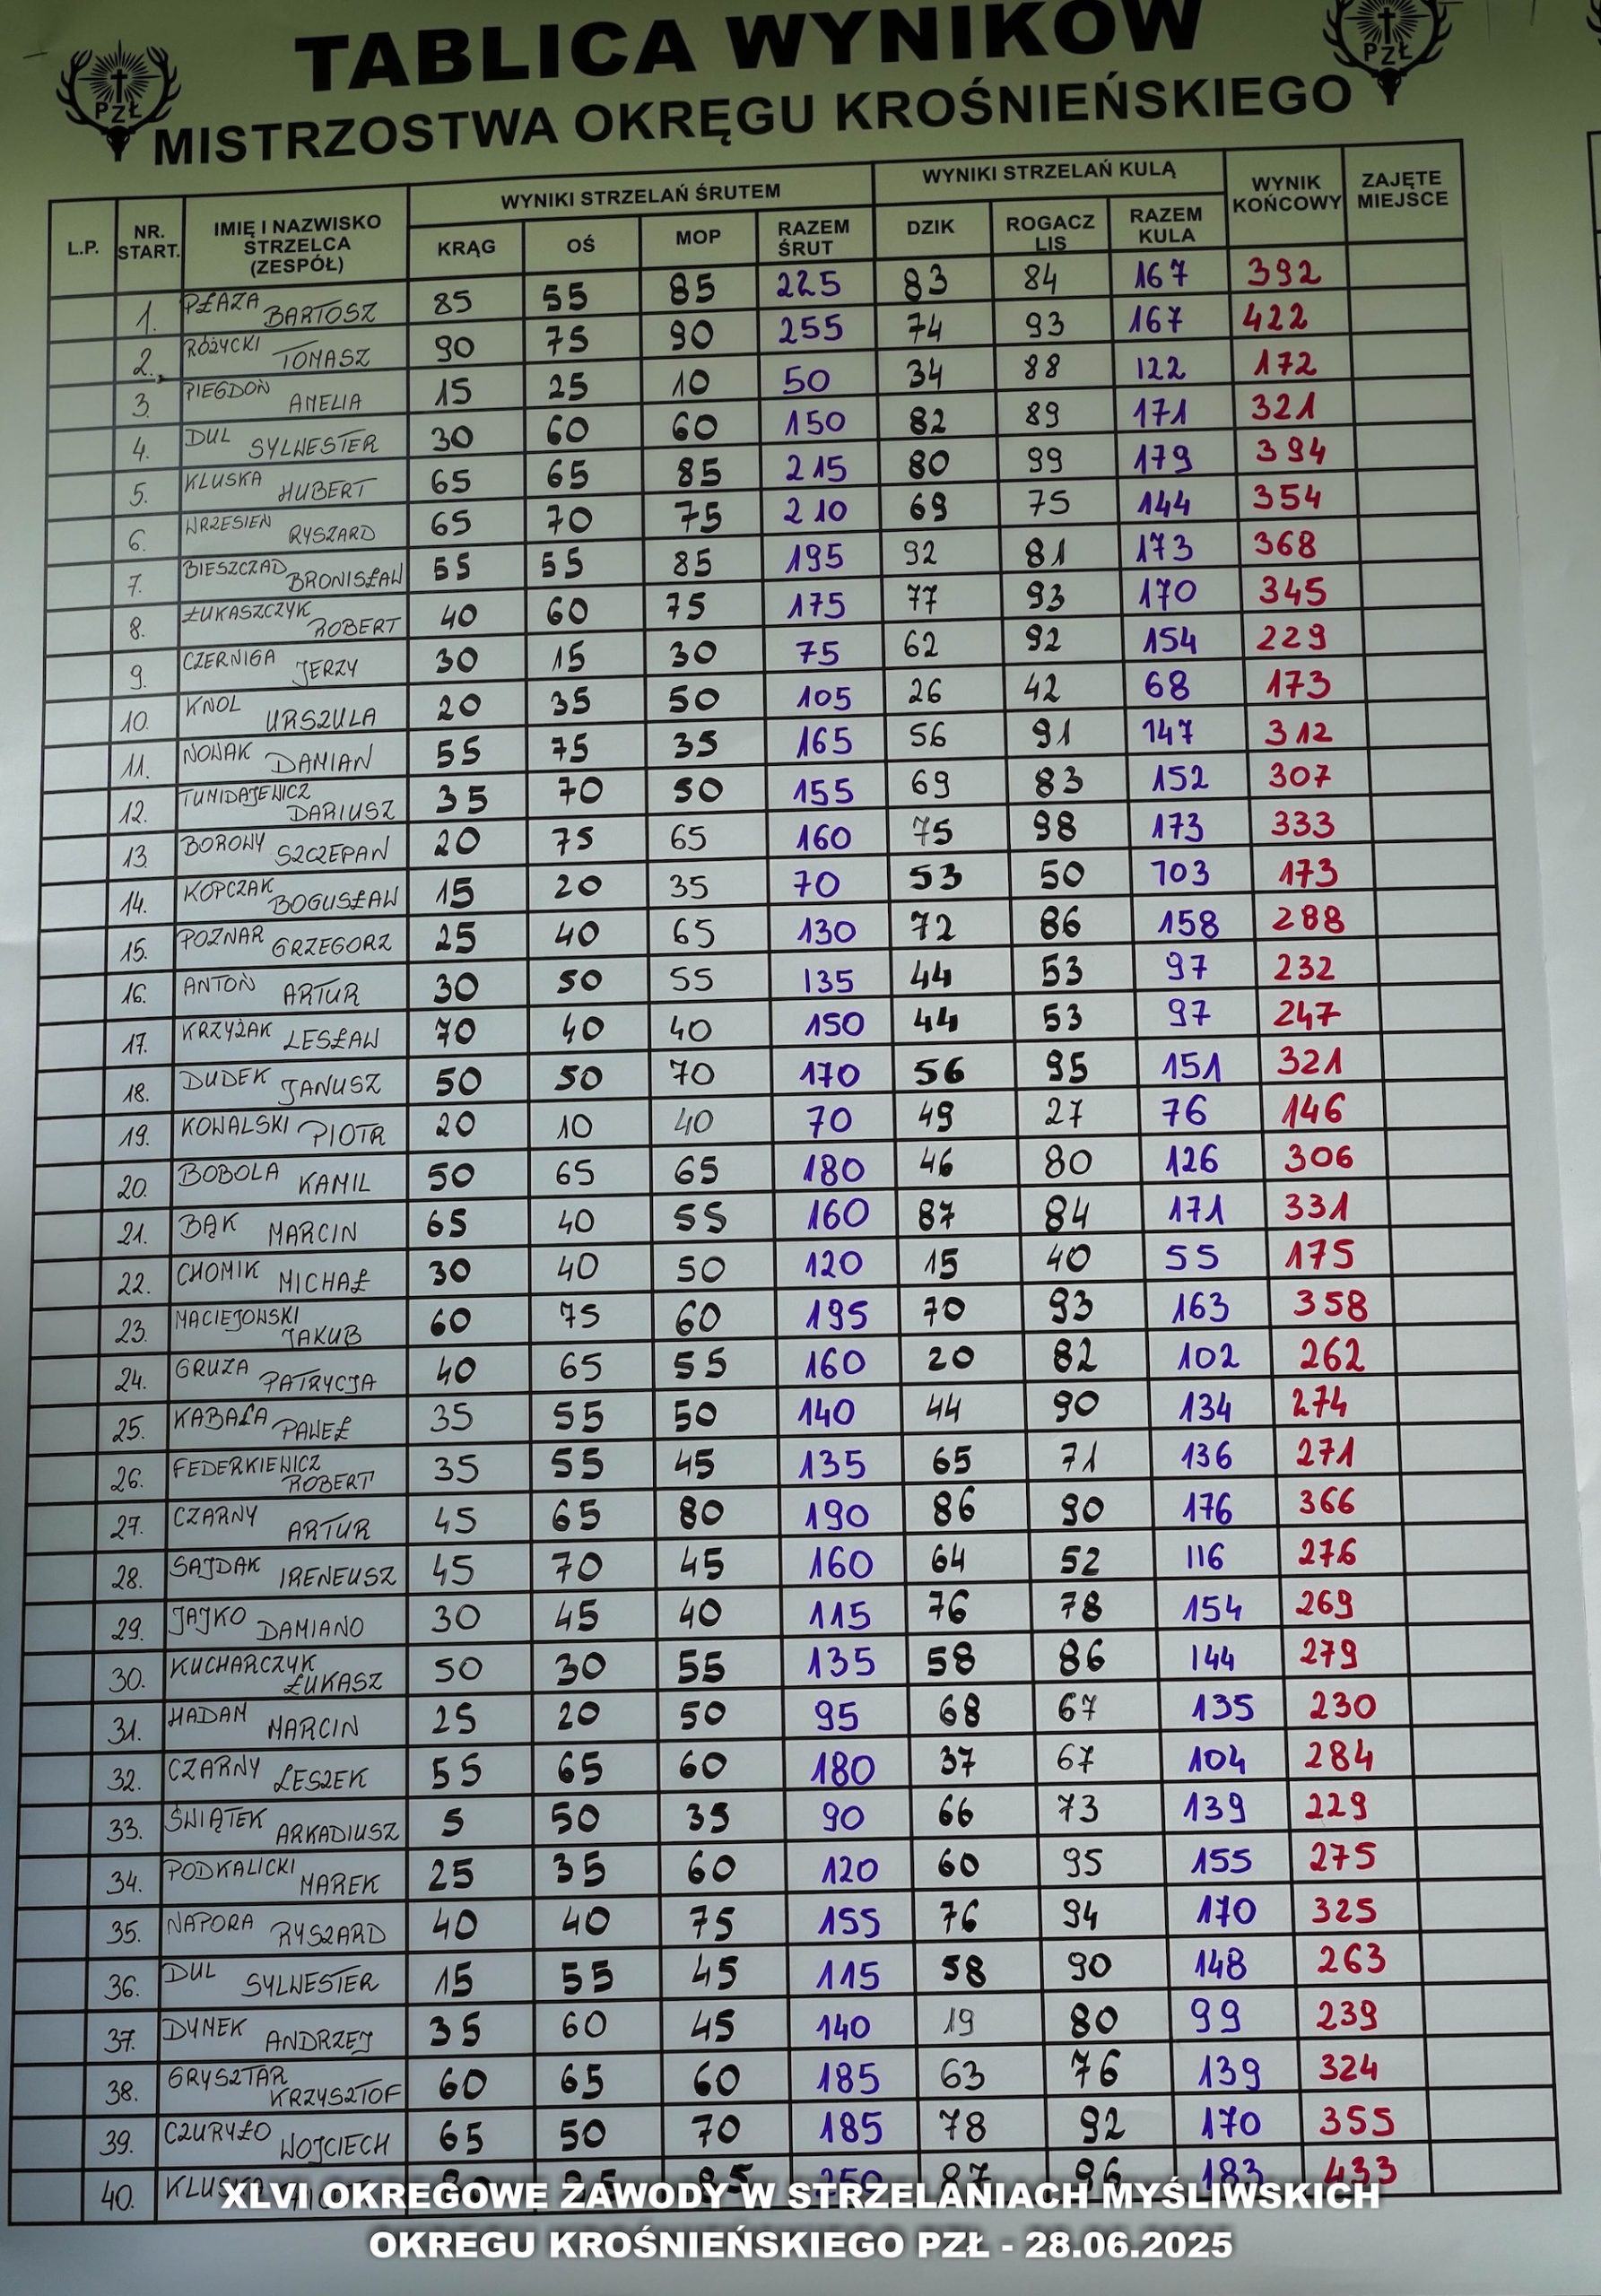 TABLICA WYNIKÓW
PZŁ
PZŁ
MISTRZOSTWA OKRĘGU KROŚNIEŃSKIEGO
L.P. NR. START. IMIĘ I NAZWISKO STRZELCA (ZESPÓŁ) WYNIKI STRZELAŃ ŚRUTEM WYNIKI STRZELAŃ KULĄ WYNIK KOŃCOWY ZAJĘTE MIEJSCE
KRĄG OŚ MOP RAZEM ŚRUT DZIK ROGACZ LIS RAZEM KULA
1. PŁAZA BARTOSZ 85 55 85 225 83 84 167 392
2. RÓŻYCKI TOMASZ 90 75 90 255 74 93 167 422
3. PIEGDOŃ AMELIA 15 25 10 50 34 88 122 172
4. DUL SYLWESTER 30 60 60 150 82 89 171 321
5. KLUSKA HUBERT 65 65 85 215 80 99 179 394
6. WRZESIEŃ RYSZARD 65 70 75 210 69 75 144 354
7. BIESZCZAD BRONISŁAW 55 55 85 195 92 81 173 368
8. ŁUKASZCZYK ROBERT 40 60 75 175 77 93 170 345
9. CZERNIGA JERZY 30 15 30 75 62 92 154 229
10. KNOL URSZULA 20 35 50 105 26 42 68 173
11. NOWAK DAMIAN 55 75 35 165 56 91 147 312
12. TUMIDAJEWICZ DARIUSZ 35 70 50 155 69 83 152 307
13. BOROWY SZCZEPAN 20 75 65 160 75 98 173 333
14. KOPCZAK BOGUSŁAW 15 20 35 70 53 50 103 173
15. POZNAR GRZEGORZ 25 40 65 130 72 86 158 288
16. ANTOŃ ARTUR 30 50 55 135 44 53 97 232
17. KRZYŻAK LESŁAW 70 40 40 150 44 53 97 247
18. DUDEK JANUSZ 50 50 70 170 56 95 151 321
19. KOWALSKI PIOTR 20 10 40 70 49 27 76 146
20. BOBOLA KAMIL 50 65 65 180 46 80 126 306
21. BĄK MARCIN 65 40 55 160 87 84 171 331
22. CHOMIK MICHAŁ 30 40 50 120 15 40 55 175
23. MACIEJOWSKI JAKUB 60 75 60 195 70 93 163 358
24. GRUZA PATRYCJA 40 65 55 160 20 82 102 262
25. KABAŁA PAWEŁ 35 55 50 140 44 90 134 274
26. FEDERKIEWICZ ROBERT 35 55 45 135 65 71 136 271
27. CZARNY ARTUR 45 65 80 190 86 90 176 366
28. SAJDAK IRENEUSZ 45 70 45 160 64 52 116 276
29. JAJKO DAMIANO 30 45 40 115 76 78 154 269
30. KUCHARCZYK ŁUKASZ 50 30 55 135 58 86 144 279
31. HADAM MARCIN 25 20 50 95 68 67 135 230
32. CZARNY LESZEK 55 65 60 180 37 67 104 284
33. ŚWIĄTEK ARKADIUSZ 5 50 35 90 66 73 139 229
34. PODKALICKI MAREK 25 35 60 120 60 95 155 275
35. NAPORA RYSZARD 40 40 75 155 76 94 170 325
36. DUL SYLWESTER 15 55 45 115 58 90 148 263
37. DYMEK ANDRZEJ 35 60 45 140 19 80 99 239
38. GRYSZTAR KRZYSZTOF 60 65 60 185 63 76 139 324
39. CZURYŁO WOJCIECH 65 50 70 185 78 92 170 355
40. KLUSKA 85 250 87 96 183 433
XLVI OKREGOWE ZAWODY W STRZELANIACH MYŚLIWSKICH
OKREGU KROŚNIEŃSKIEGO PZŁ - 28.06.2025